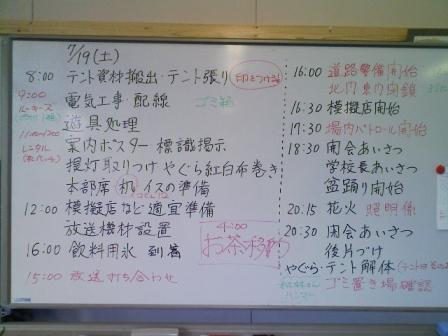 7/19(土)
8:00 テント資材搬出・テント張り 印をつける
9:00 電気工事・配線 ゴミ箱
ルーキーズ
遊具処理
11:00
レンタル 案内ポスター 標識掲示
提灯取りつけ やぐら紅白布巻き
本部席(机)イスの準備
12:00 模擬店など適宜準備
放送機材設置
16:00 飲料用水 到着
15:00 放送打ち合わせ
4:00
お茶予約
16:00 道路警備開始
北門 東門閉鎖
16:30 模擬店開始
17:30 場内パトロール開始
18:30 開会あいさつ
学校長あいさつ
盆踊り開始
20:15 花火 照明係
20:30 閉会あいさつ
後片づけ
やぐら・テント解体
ハンマー ゴミ置き場確認